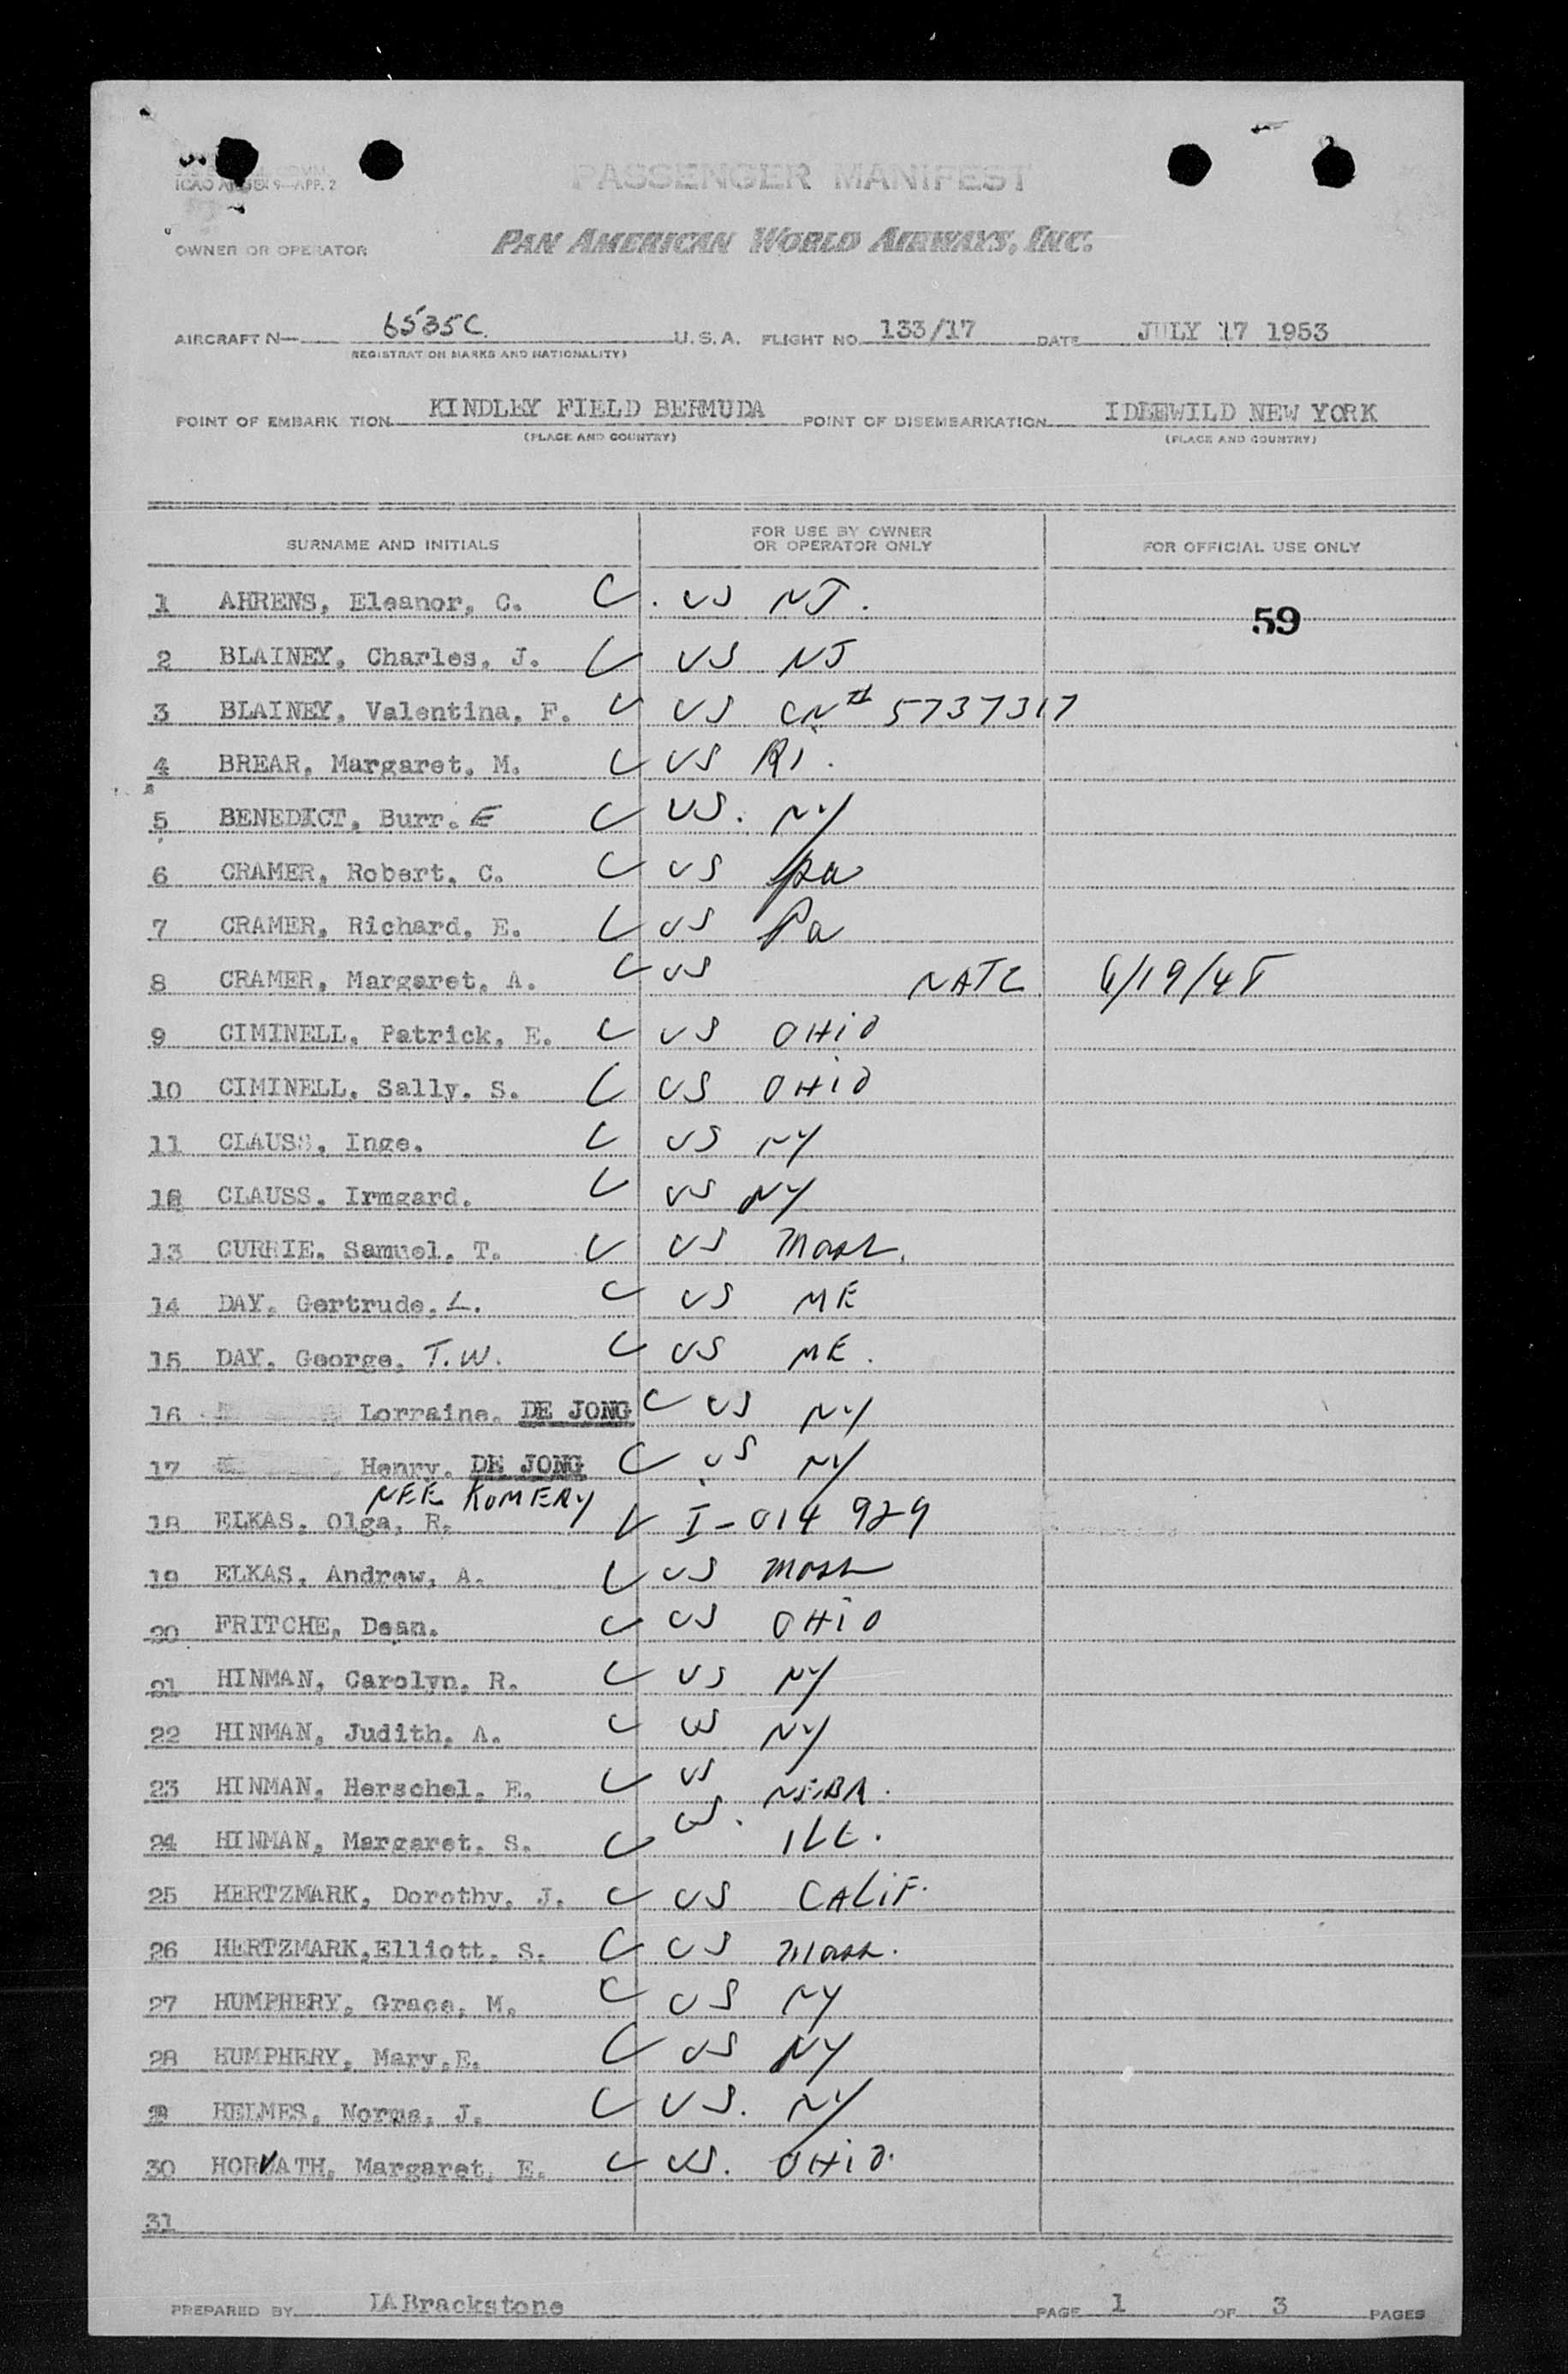 ICAO ANNEX 9—APP. 2
PASSENGER MANIFEST
OWNER OR OPERATOR PAN AMERICAN WORLD AIRWAYS, INC.
AIRCRAFT N— 6535C U.S.A. FLIGHT NO. 133/17 DATE JULY 17 1953
REGISTRATION MARKS AND NATIONALITY)
POINT OF EMBARK TION KINDLEY FIELD BERMUDA POINT OF DISEMBARKATION IDLEWILD NEW YORK
(PLACE AND COUNTRY) (PLACE AND COUNTRY)
SURNAME AND INITIALS FOR USE BY OWNER OR OPERATOR ONLY FOR OFFICIAL USE ONLY
1 AHRENS, Eleanor, C. C. US NJ.
59
2 BLAINEY, Charles, J. C US NJ
3 BLAINEY, Valentina, F. C US CN# 5737317
4 BREAR, Margaret, M. C US RI.
5 BENEDICT, Burr. E C US. NY
6 CRAMER, Robert, C. C US Pa
7 CRAMER, Richard, E. C US Pa
8 CRAMER, Margaret, A. C US NATZ 6/19/45
9 CIMINELL, Patrick, E. C US OHIO
10 CIMINELL, Sally, S. C US OHIO
11 CLAUSS, Inge. C US NY
12 CLAUSS, Irmgard. C US NY
13 CURRIE, Samuel, T. C US Mass.
14 DAY, Gertrude, L. C US ME
15 DAY, George, T.W. C US ME.
16 Lorraine, DE JONG C US NY
17 Henry, DE JONG C US NY
NEE KOMERY
18 ELKAS, Olga, R. C I-014 929
19 ELKAS, Andrew, A. C US Mass
20 FRITCHE, Dean. C US OHIO
21 HINMAN, Carolyn, R. C US NY
22 HINMAN, Judith, A. C US NY
23 HINMAN, Herschel, E. C US NEBR.
24 HINMAN, Margaret, S. C US. ILL.
25 HERTZMARK, Dorothy, J. C US CALIF.
26 HERTZMARK,Elliott, S. C US Mass.
27 HUMPHERY, Grace, M. C US NY
28 HUMPHERY, Mary,E. C US NY
29 HELMES, Norma, J. C US. NY
30 HORVATH, Margaret, E. C US. OHIO.
31
PREPARED BY IABrackstone PAGE 1 OF 3 PAGES